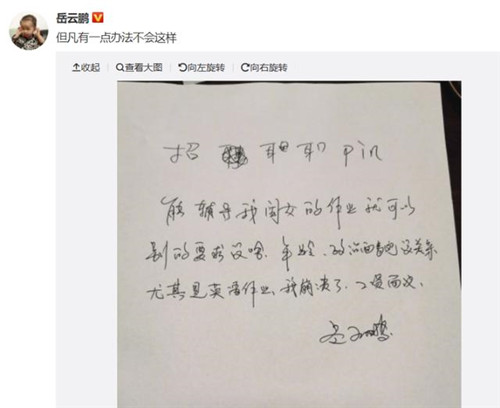 岳云鹏
但凡有一点办法不会这样
收起 查看大图 向左旋转 向右旋转
招 耶 职 Pin
能辅导我闺女的作业就可以
别的要求没啥．年龄．政治面貌都没关系
尤其是英语作业，我崩溃了．工资面议．
岳云鹏